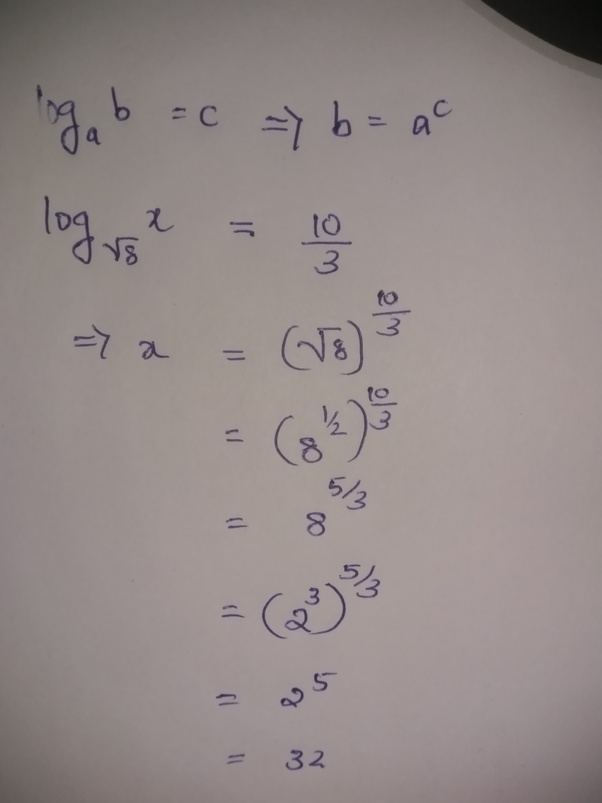 logₐ b = c ⇒ b = a^c
log_√8 x = 10/3
⇒ x = (√8)^(10/3)
= (8^(1/2))^(10/3)
= 8^(5/3)
= (2^3)^(5/3)
= 2^5
= 32